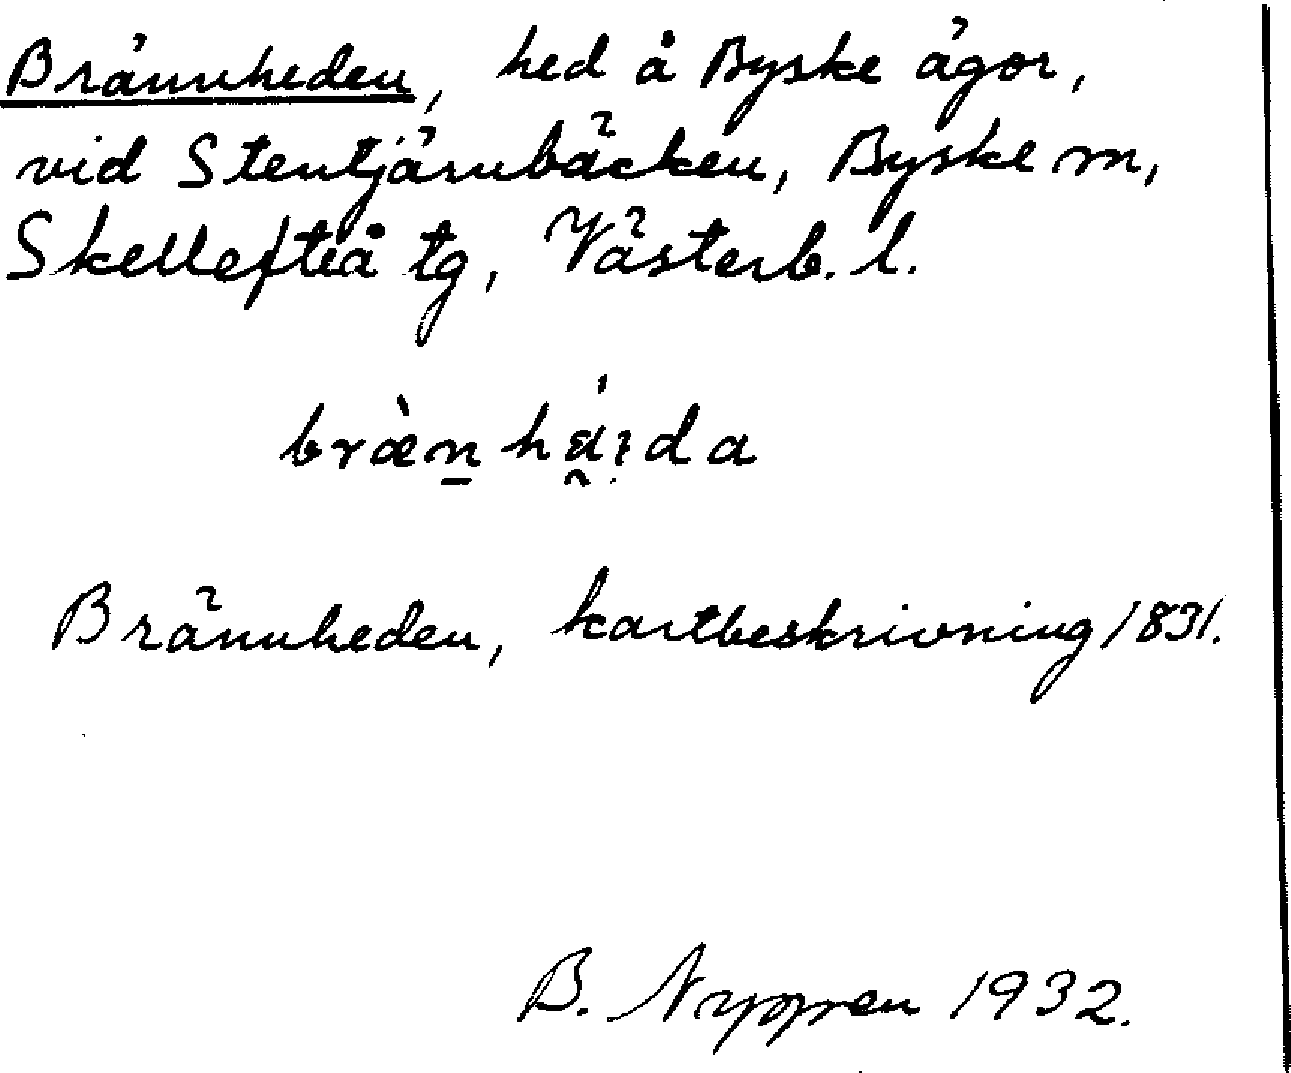 Brännheden, hed å Byske ägor,
vid Stentjärnbäcken, Byske m,
Skellefteå tg, Västerb. l.
bræ̀n̠ há̰ıda
Brännheden, kartbeskrivning 1831.
B. Nyppen 1932.